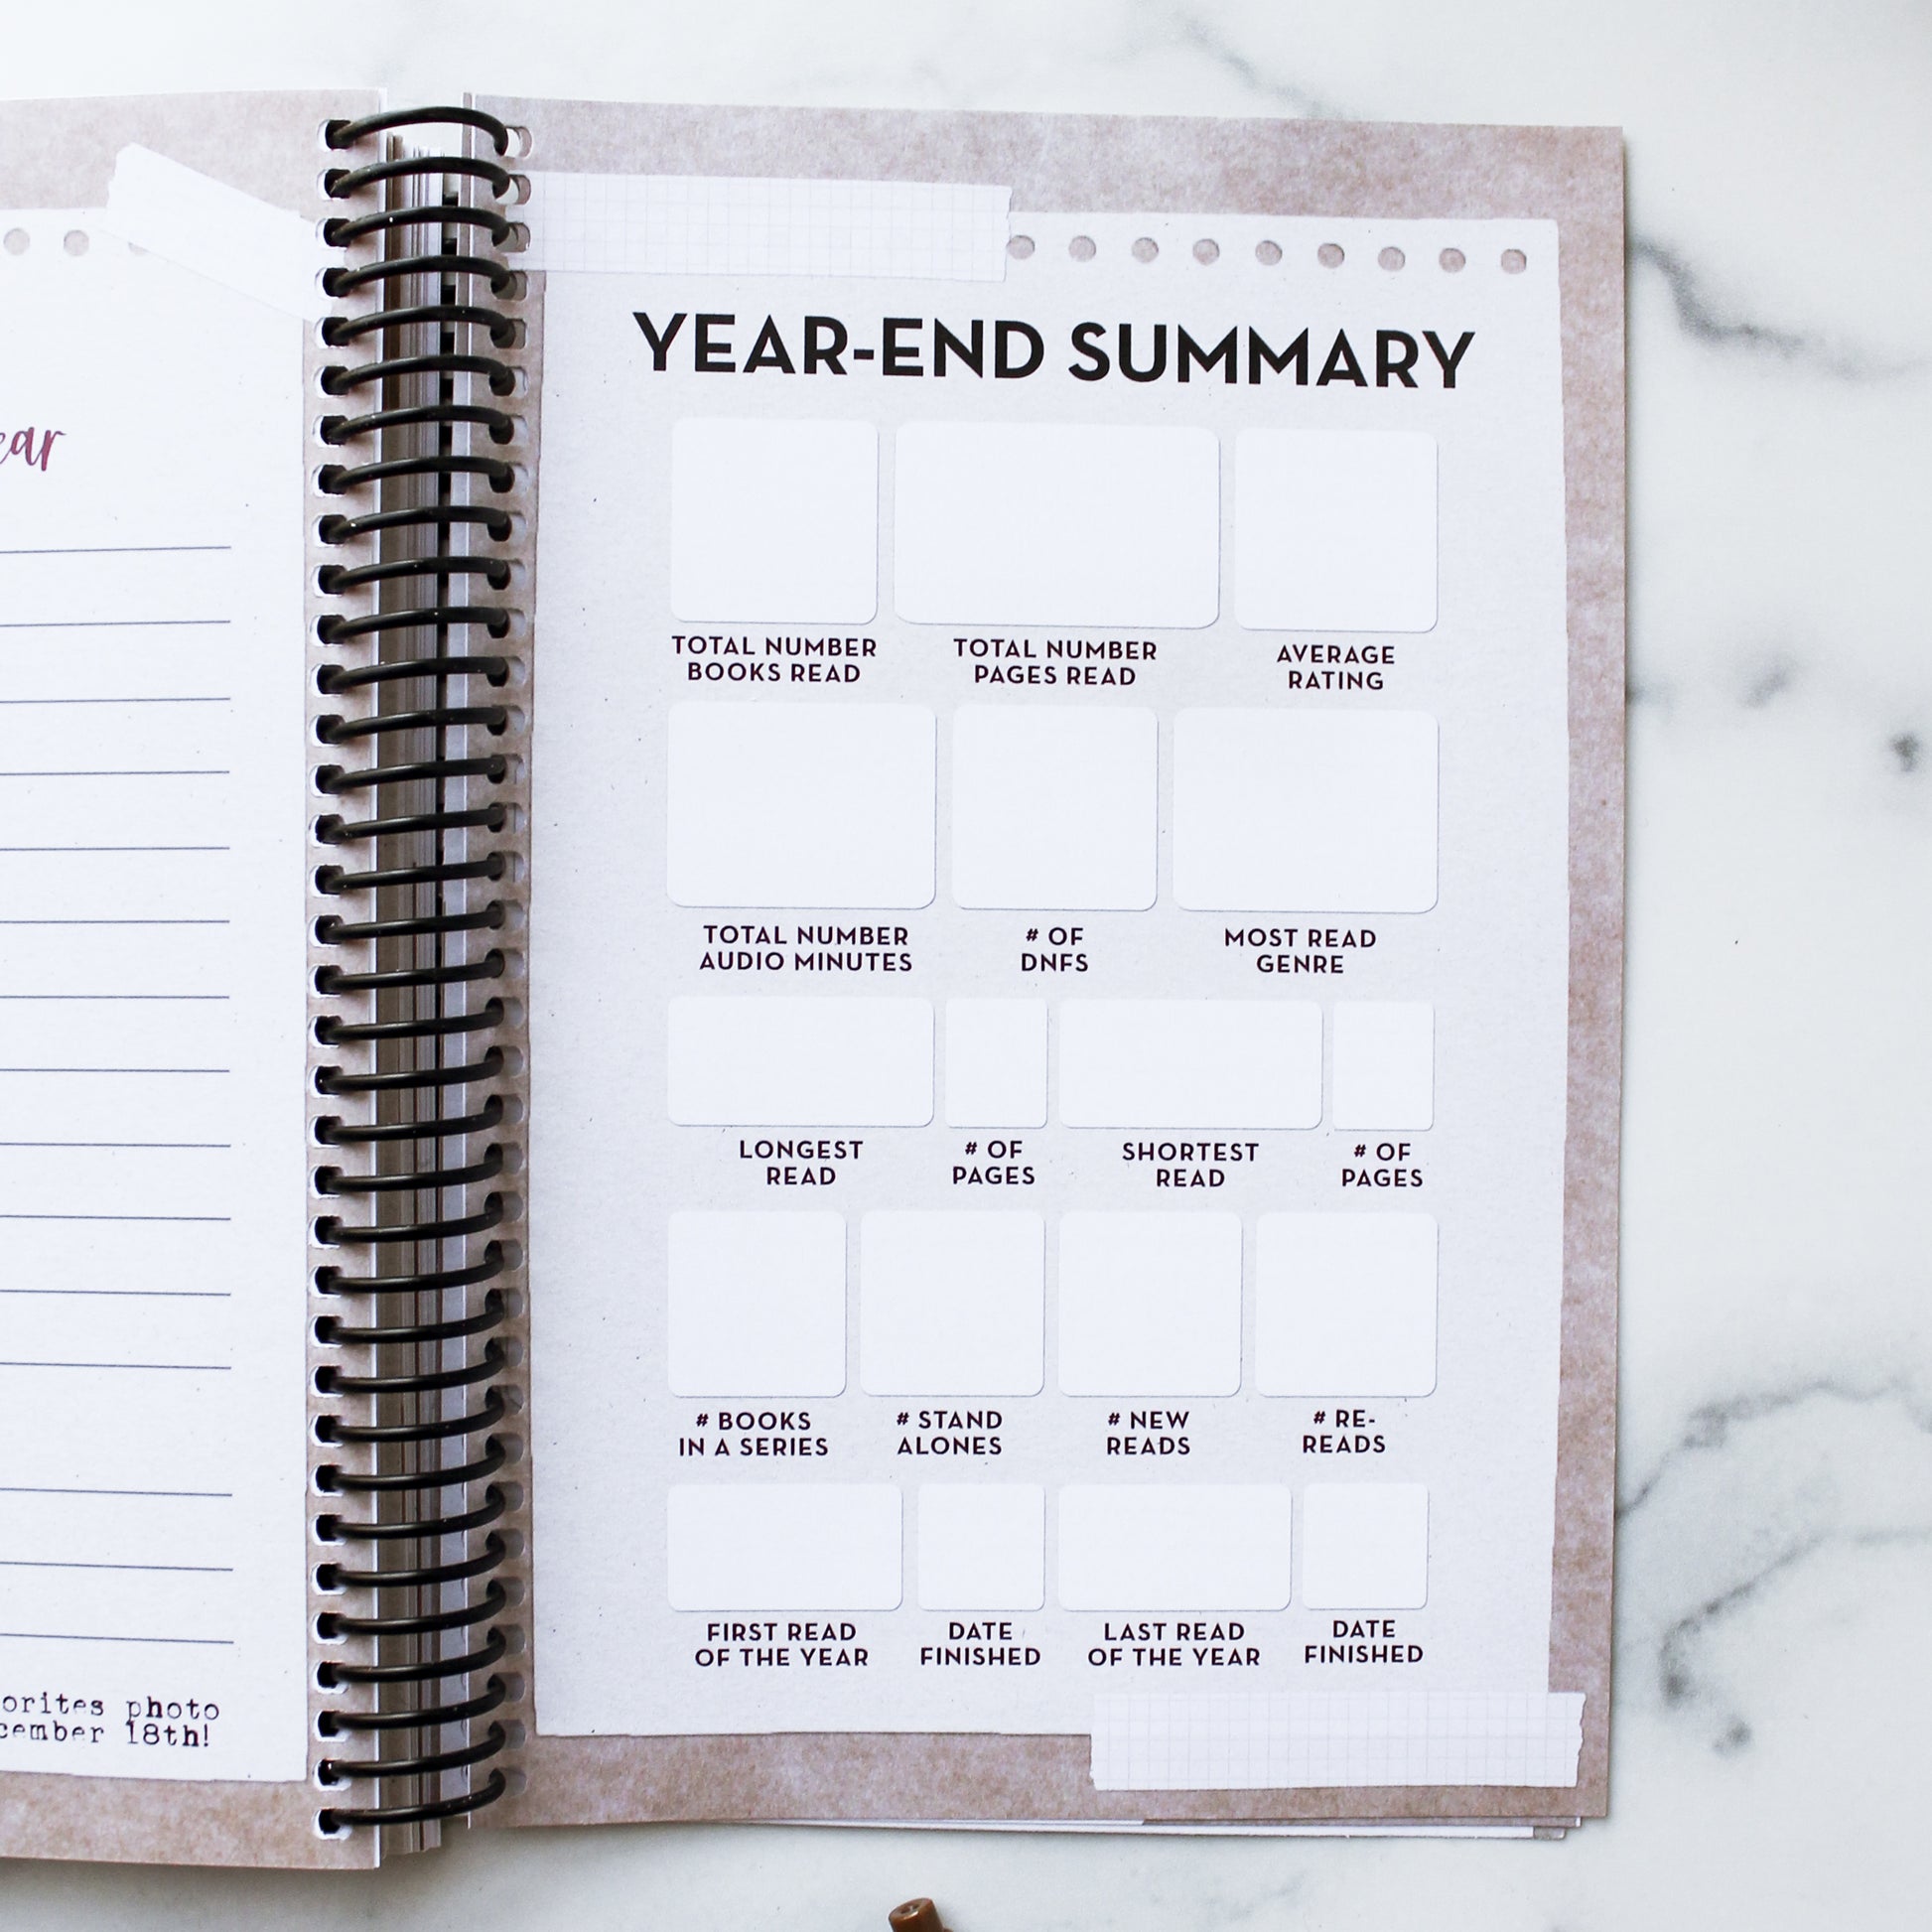 YEAR-END SUMMARY
TOTAL NUMBER
BOOKS READ
TOTAL NUMBER
PAGES READ
AVERAGE
RATING
TOTAL NUMBER
AUDIO MINUTES
# OF
DNFS
MOST READ
GENRE
LONGEST
READ
# OF
PAGES
SHORTEST
READ
# OF
PAGES
# BOOKS
IN A SERIES
# STAND
ALONES
# NEW
READS
# RE-
READS
FIRST READ
OF THE YEAR
DATE
FINISHED
LAST READ
OF THE YEAR
DATE
FINISHED
photo
18th!